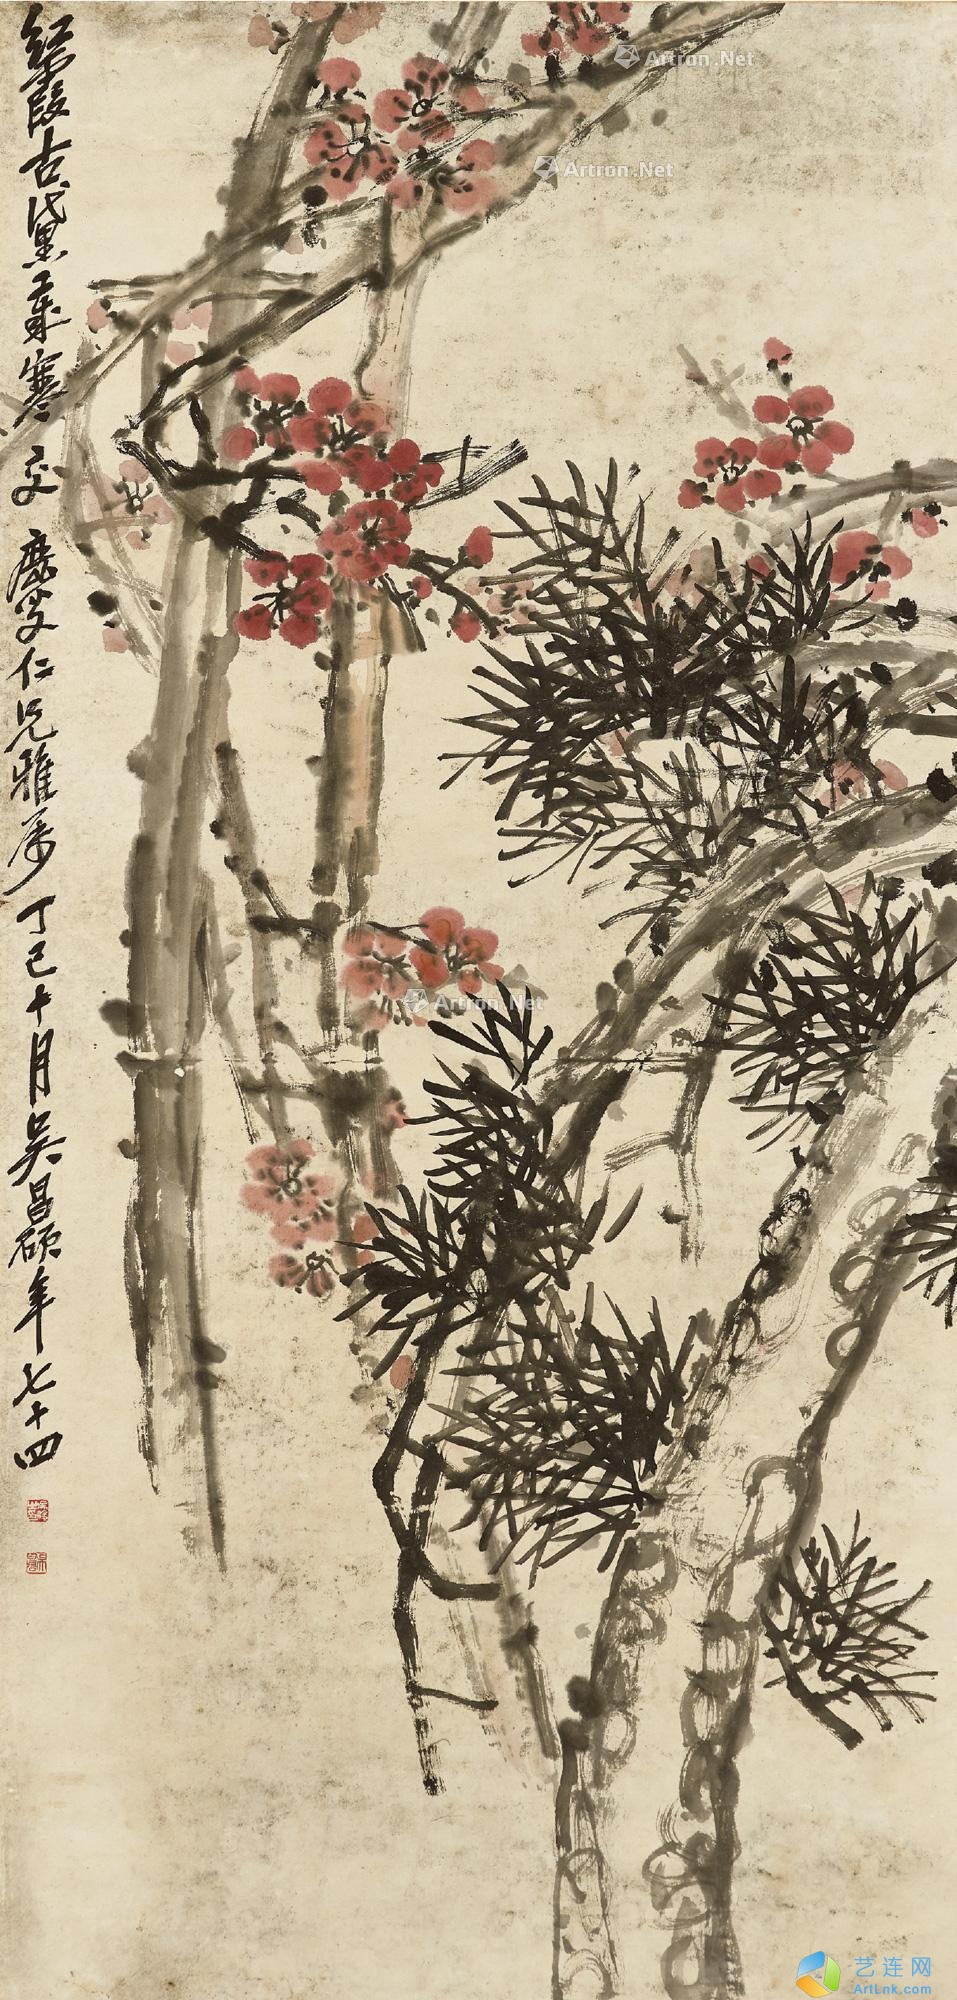 絳霞古黛歲寒交 塵叟仁兄雅屬 丁巳十月 吳昌碩年七十四
Artron.Net
Artron.Net
Artron.Net
艺连网
ArtLnk.com